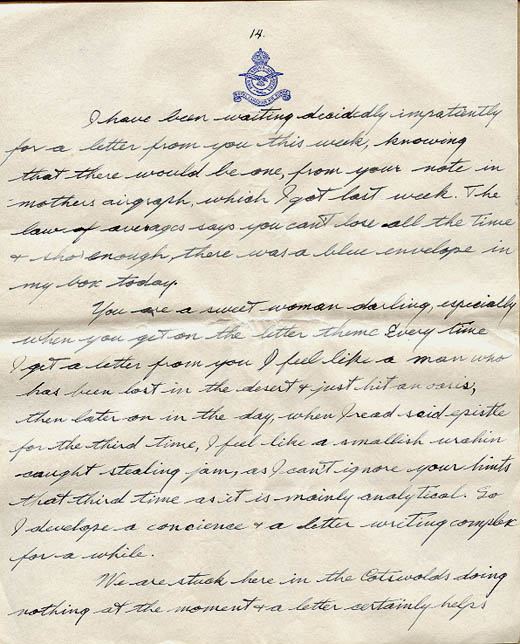 14.
I have been waiting decidedly impatiently
for a letter from you this week, knowing
that there would be one, from your note in
mothers airgraph, which I got last week. The
law of averages says you can't lose all the time
& sho' enough, there was a blue envelope in
my box today.
You are a sweet woman darling, especially
when you get on the letter theme. Every time
I get a letter from you I feel like a man who
has been lost in the desert & just hit an oasis;
then later on in the day, when I read said epistle
for the third time, I feel like a smallish urchin
caught stealing jam, as I can't ignore your hints
that third time as it is mainly analytical. So
I develope a concience & a letter writing complex
for a while.
We are stuck here in the Cotswolds doing
nothing at the moment & a letter certainly helps